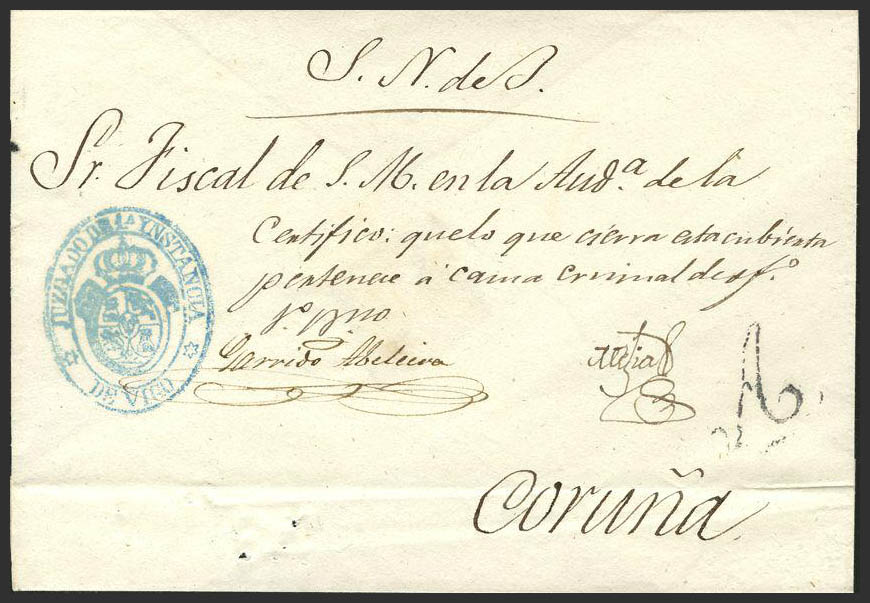 S. N. de J.
Sr. Fiscal de S. M. en la Aud.ª de la
Certifico: que lo que cierra esta cubierta
pertenece á causa criminal de of.º
JUZGADO DE 1ª YNSTANCIA
DE VIGO
Garrido Abeleira
A
Coruña